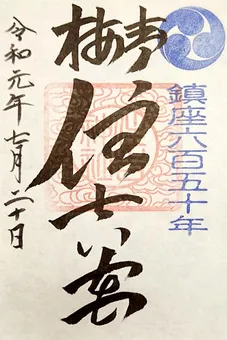 鎮座六百五十年
青梅
住吉
令和元年七月二十日